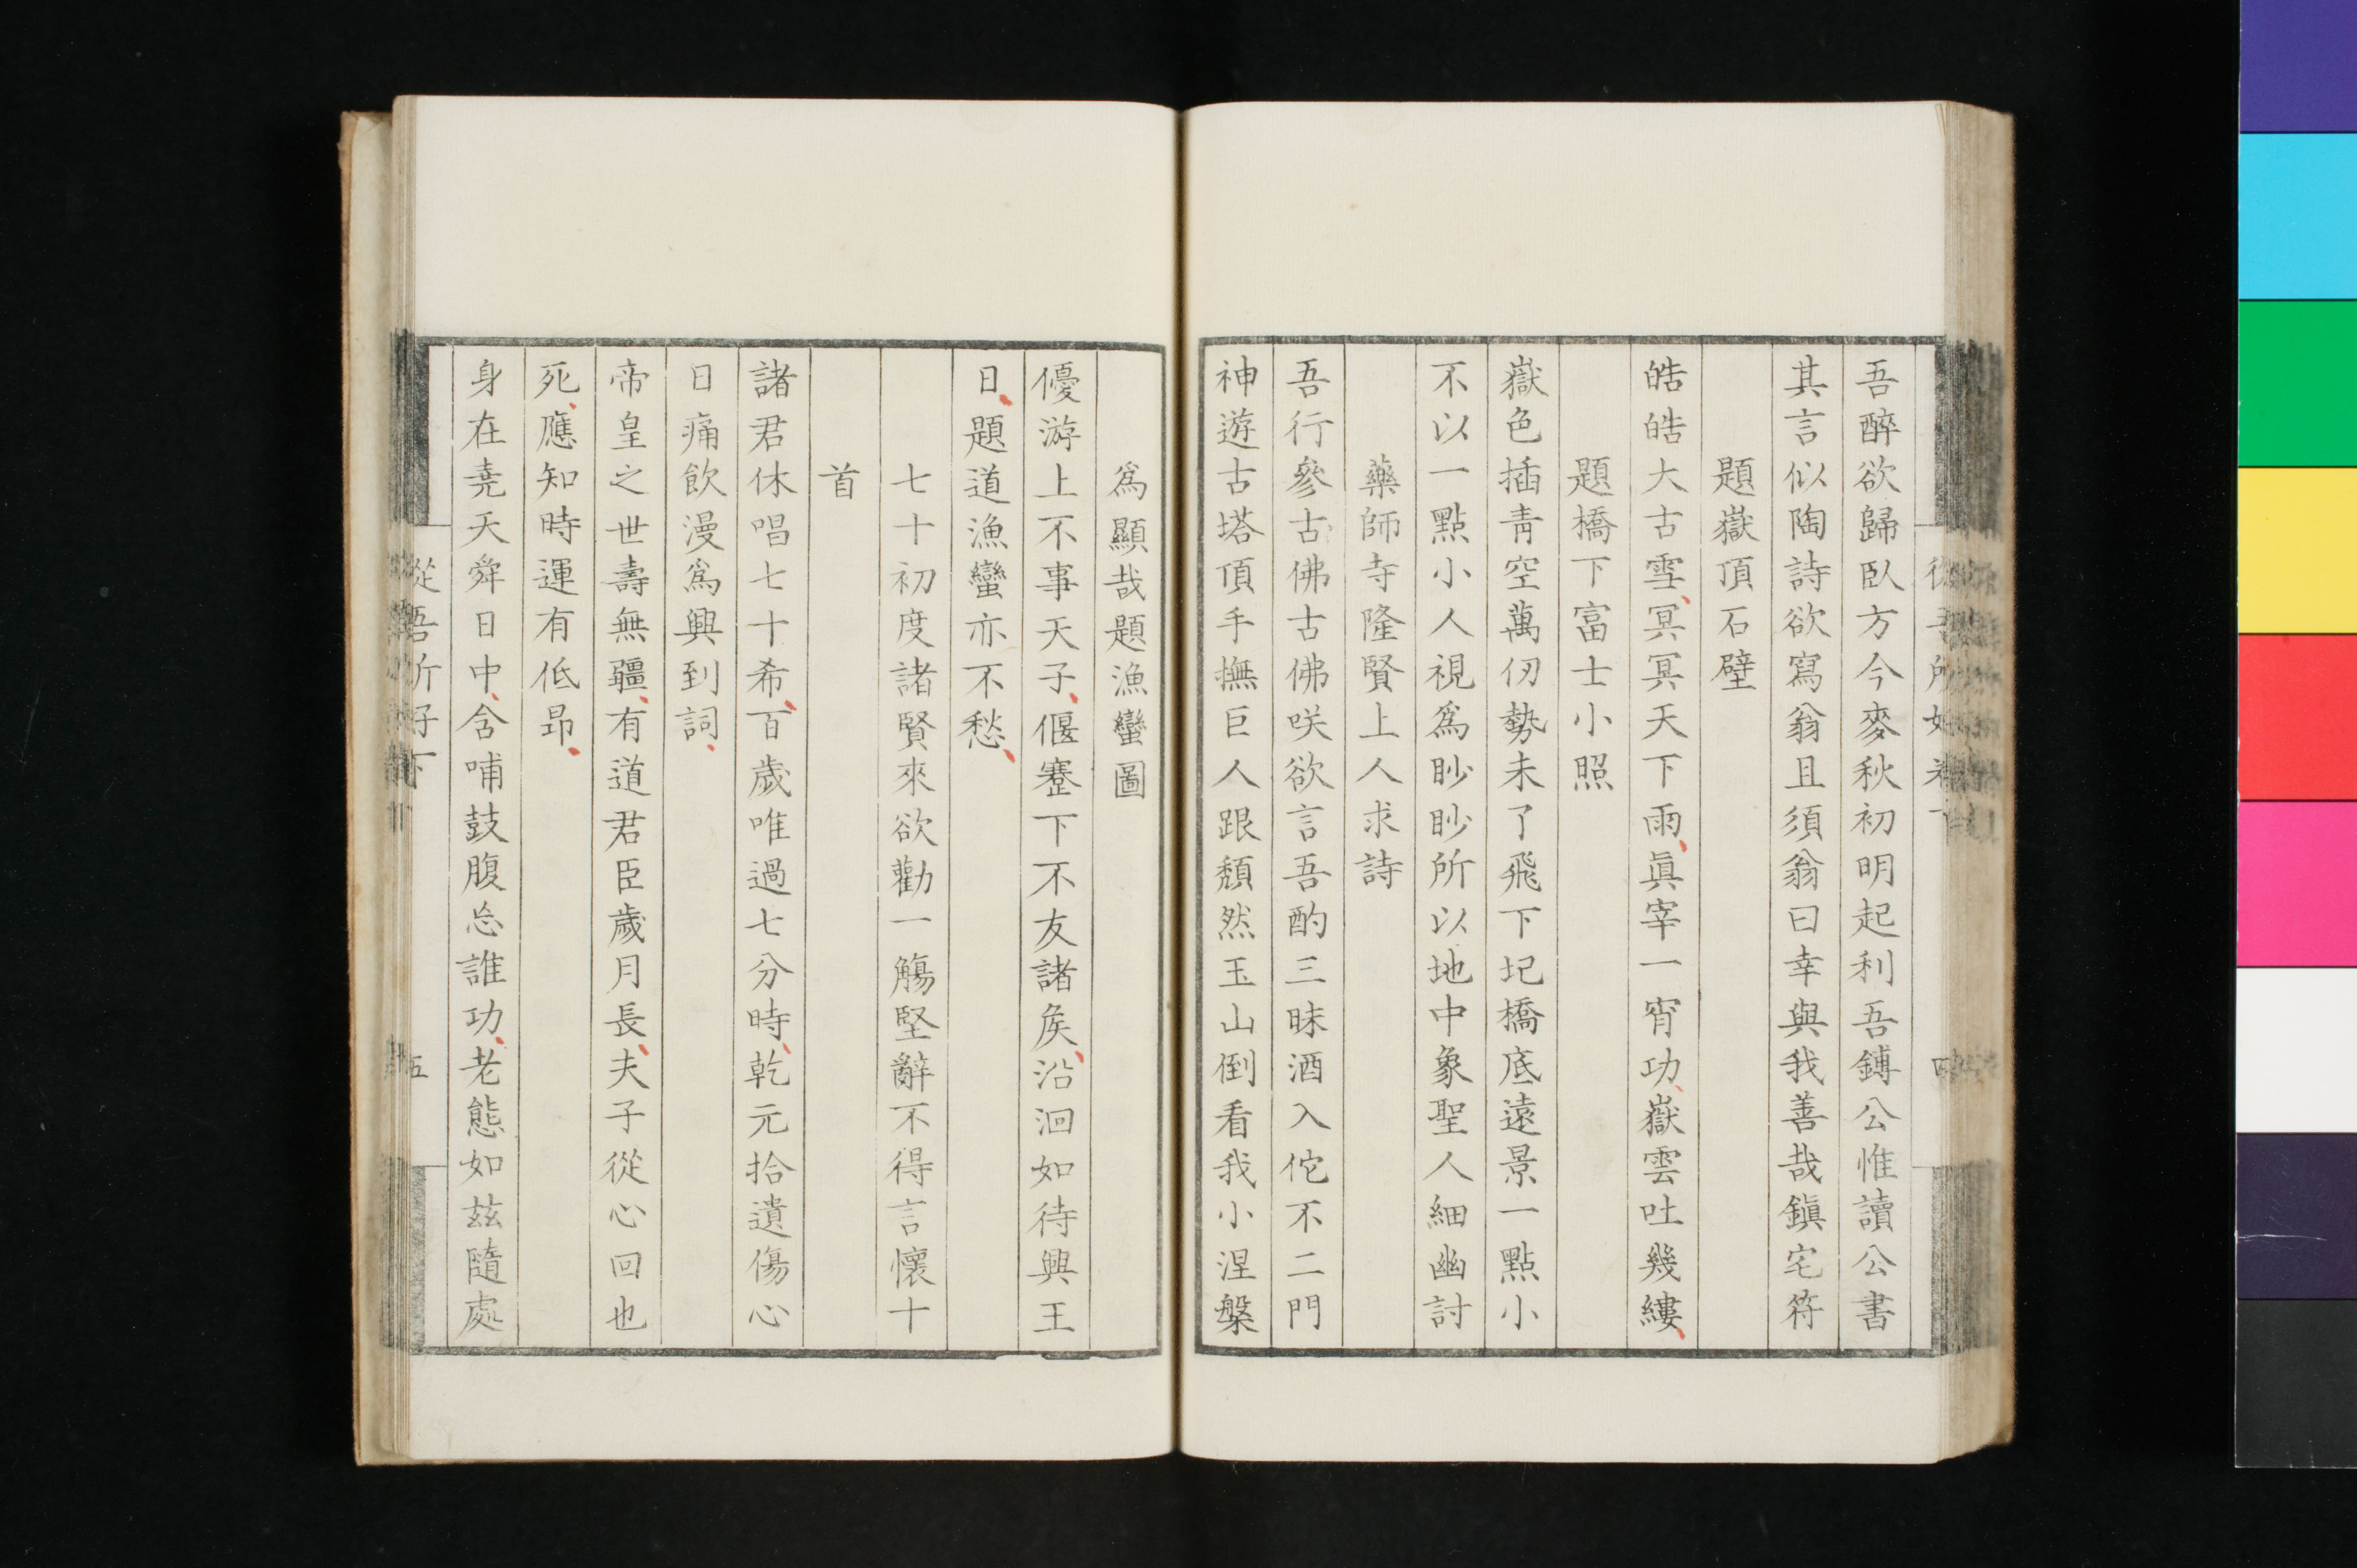 吾醉欲歸臥方今麥秋初明起利吾鎛公惟讀公書
其言似陶詩欲寫翁且須翁曰幸與我善哉鎭宅符
題嶽頂石壁
皓皓大古雪、冥冥天下雨、眞宰一宵功、嶽雲吐幾縷、
題橋下富士小照
嶽色插青空萬仞勢未了飛下圯橋底遠景一點小
不以一點小人視爲眇眇所以地中象聖人細幽討
藥師寺隆賢上人求詩
吾行參古佛古佛咲欲言吾酌三昧酒入佗不二門
神遊古塔頂手撫巨人跟頽然玉山倒看我小涅槃
爲顯哉題漁蠻圖
優游上不事天子、偃蹇下不友諸矦、沿洄如待興王
日、題道漁蠻亦不愁、
七十初度諸賢來欲勸一觴堅辭不得言懷十
首
諸君休唱七十希、百歲唯過七分時、乾元拾遺傷心
日痛飲漫爲興到詞、
帝皇之世壽無疆、有道君臣歲月長、夫子從心回也
死、應知時運有低昂、
身在堯天舜日中、含哺鼓腹忘誰功、老態如玆隨處
從吾所好下
五